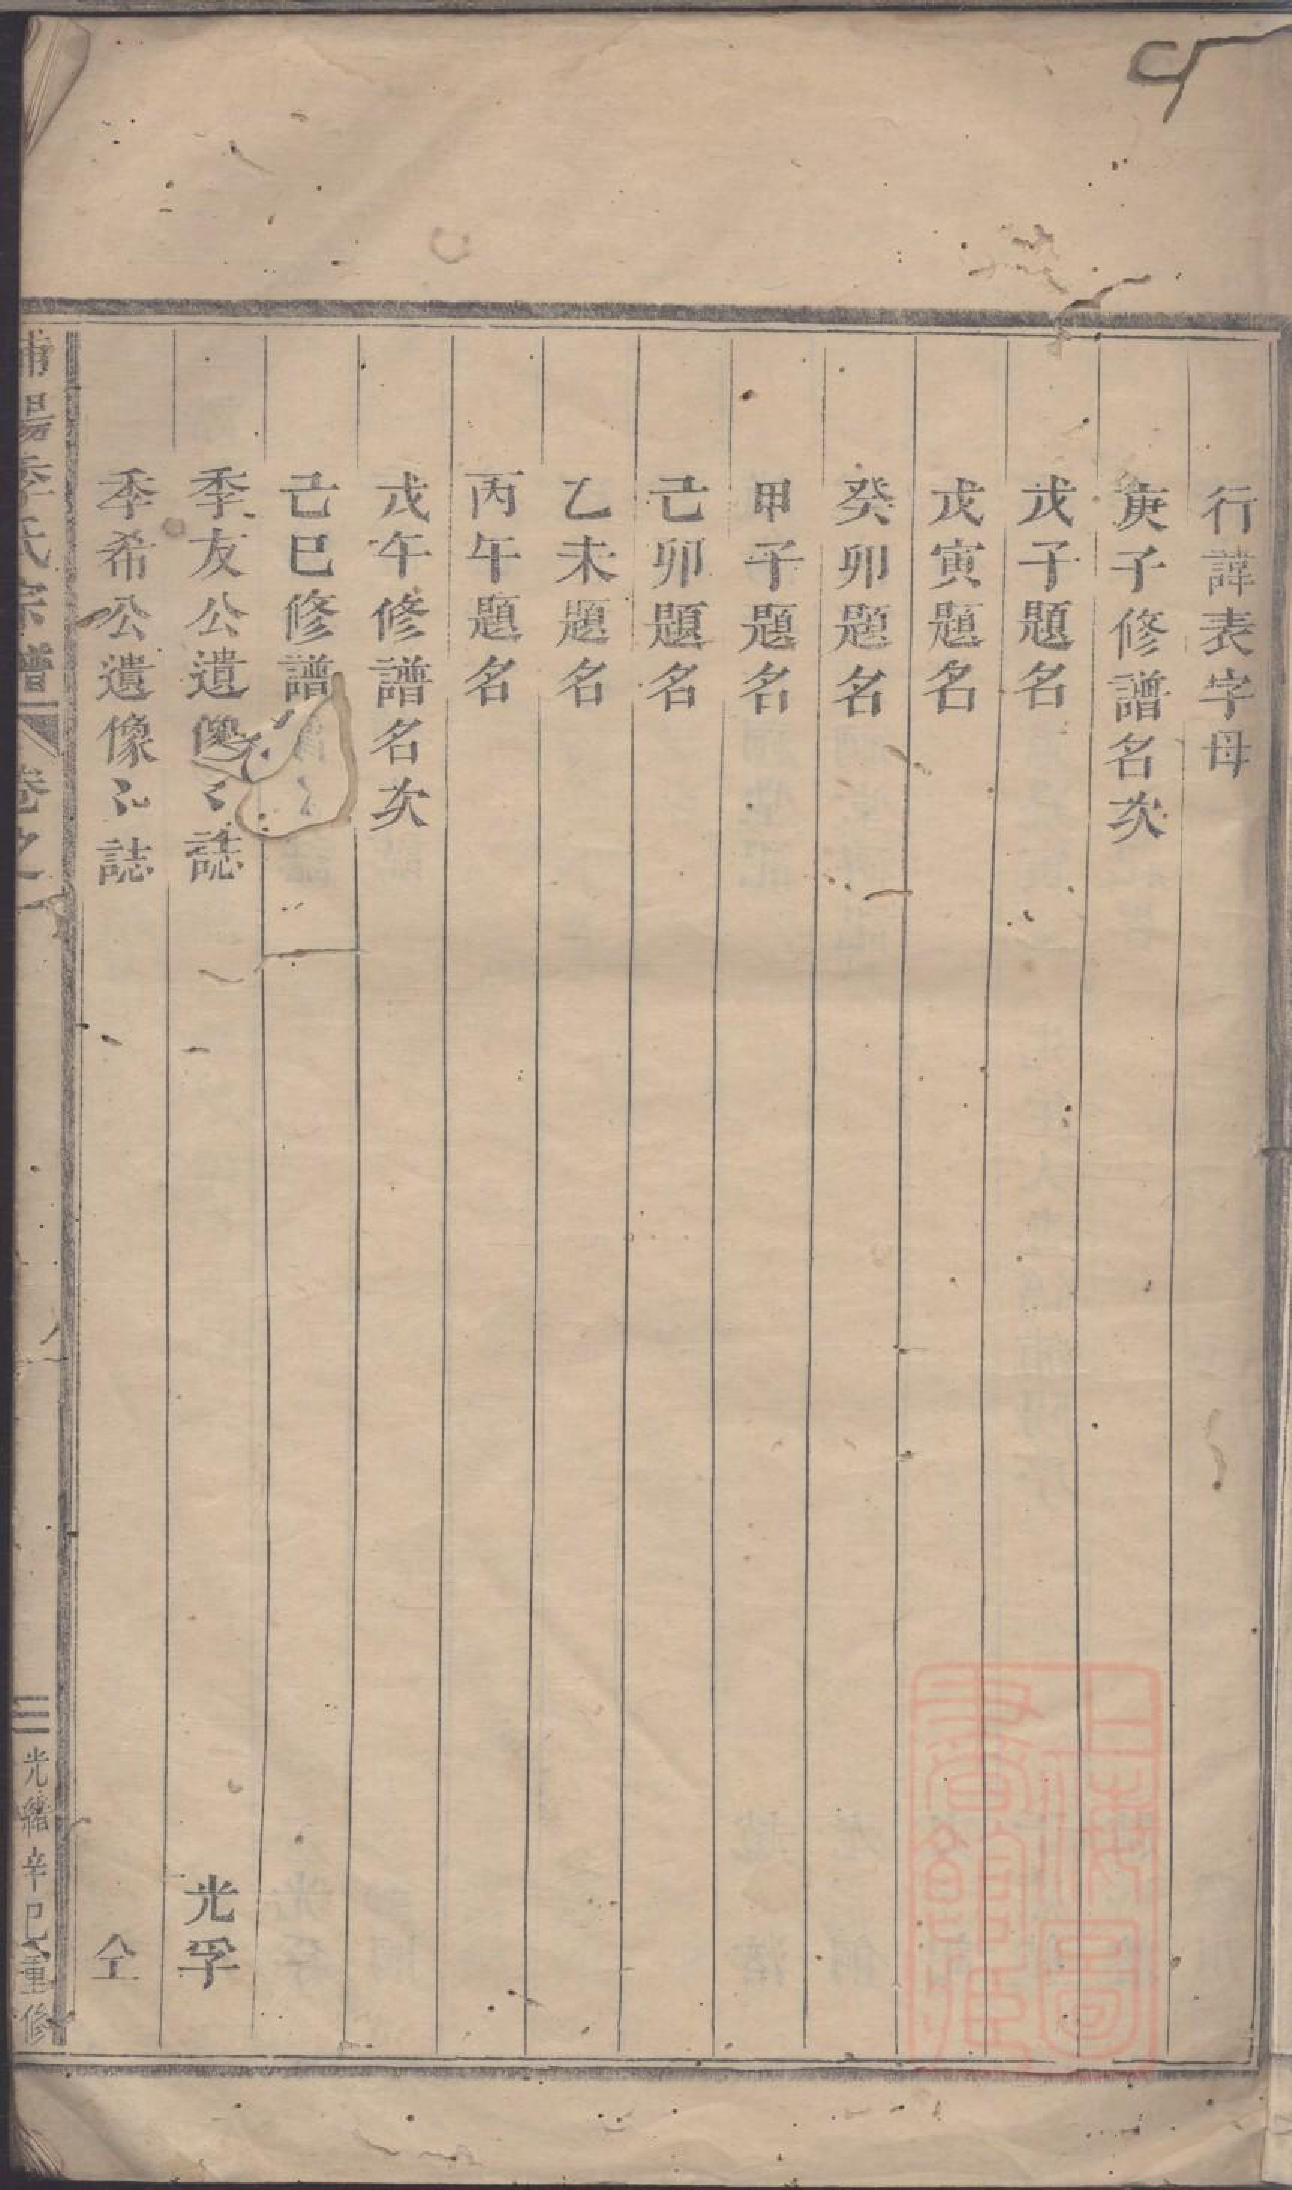 行諱表字母
庚子修譜名次
戊子題名
戊寅題名
癸卯題名
甲子題名
己卯題名
乙未題名
丙午題名
戊午修譜名次
己巳修譜
季友公遺像〻誌 光孚
季希公遺像〻誌 仝
浦陽季氏宗譜 卷之一 三 光緒辛巳重修
上海圖書館藏